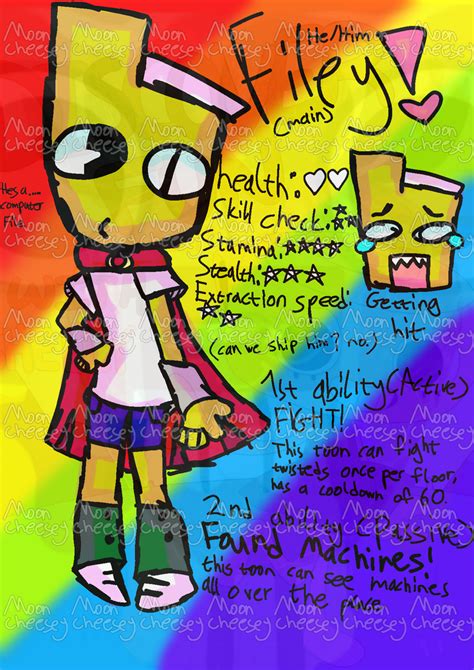 He/Him
Filey!
(main)
Hes a....
computer
File.
health:♡♡
Skill check:☆☆
Stamina:☆☆☆☆
Stealth:☆☆☆
Extraction speed:
☆☆
(can we ship him? no.)
Getting
hit
1st ability(Active)
FIGHT!
This toon can fight
twisteds once per floor,
has a cooldown of 60.
2nd ability (Passive)
Found Machines!
this toon can see machines
all over the place
Moon
Cheesey